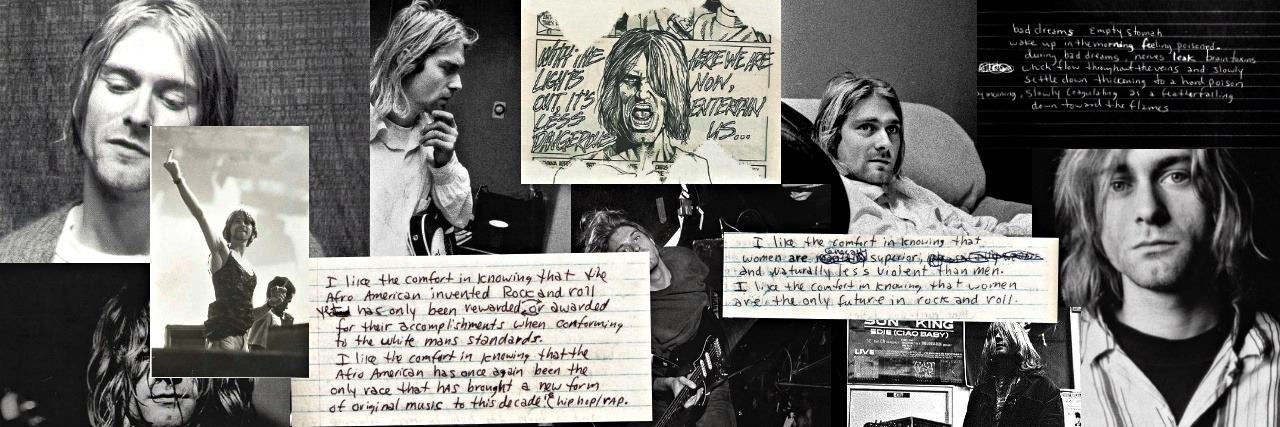 WITH THE
LIGHTS
OUT, IT'S
LESS
DANGEROUS
HERE WE ARE
NOW,
ENTERTAIN
US...
bad dreams Empty stomach
wake up in the morning feeling poisoned.
during bad dreams, nerves leak brain toxins
which flow throughout the veins and slowly
settle down thickening to a hard poison
slowly coagulating as a feather falling
down toward the flames
I like the comfort in knowing that
women are superior,
and naturally less violent than men.
I like the comfort in knowing that women
are the only future in rock and roll.
I like the comfort in knowing that the
Afro American invented Rock and roll
yet has only been rewarded or awarded
for their accomplishments when conforming
to the white mans standards.
I like the comfort in knowing that the
Afro American has once again been the
only race that has brought a new form
of original music to this decade! (hiphop/rap.
KING
EDIE (CIAO BABY)
LIVE